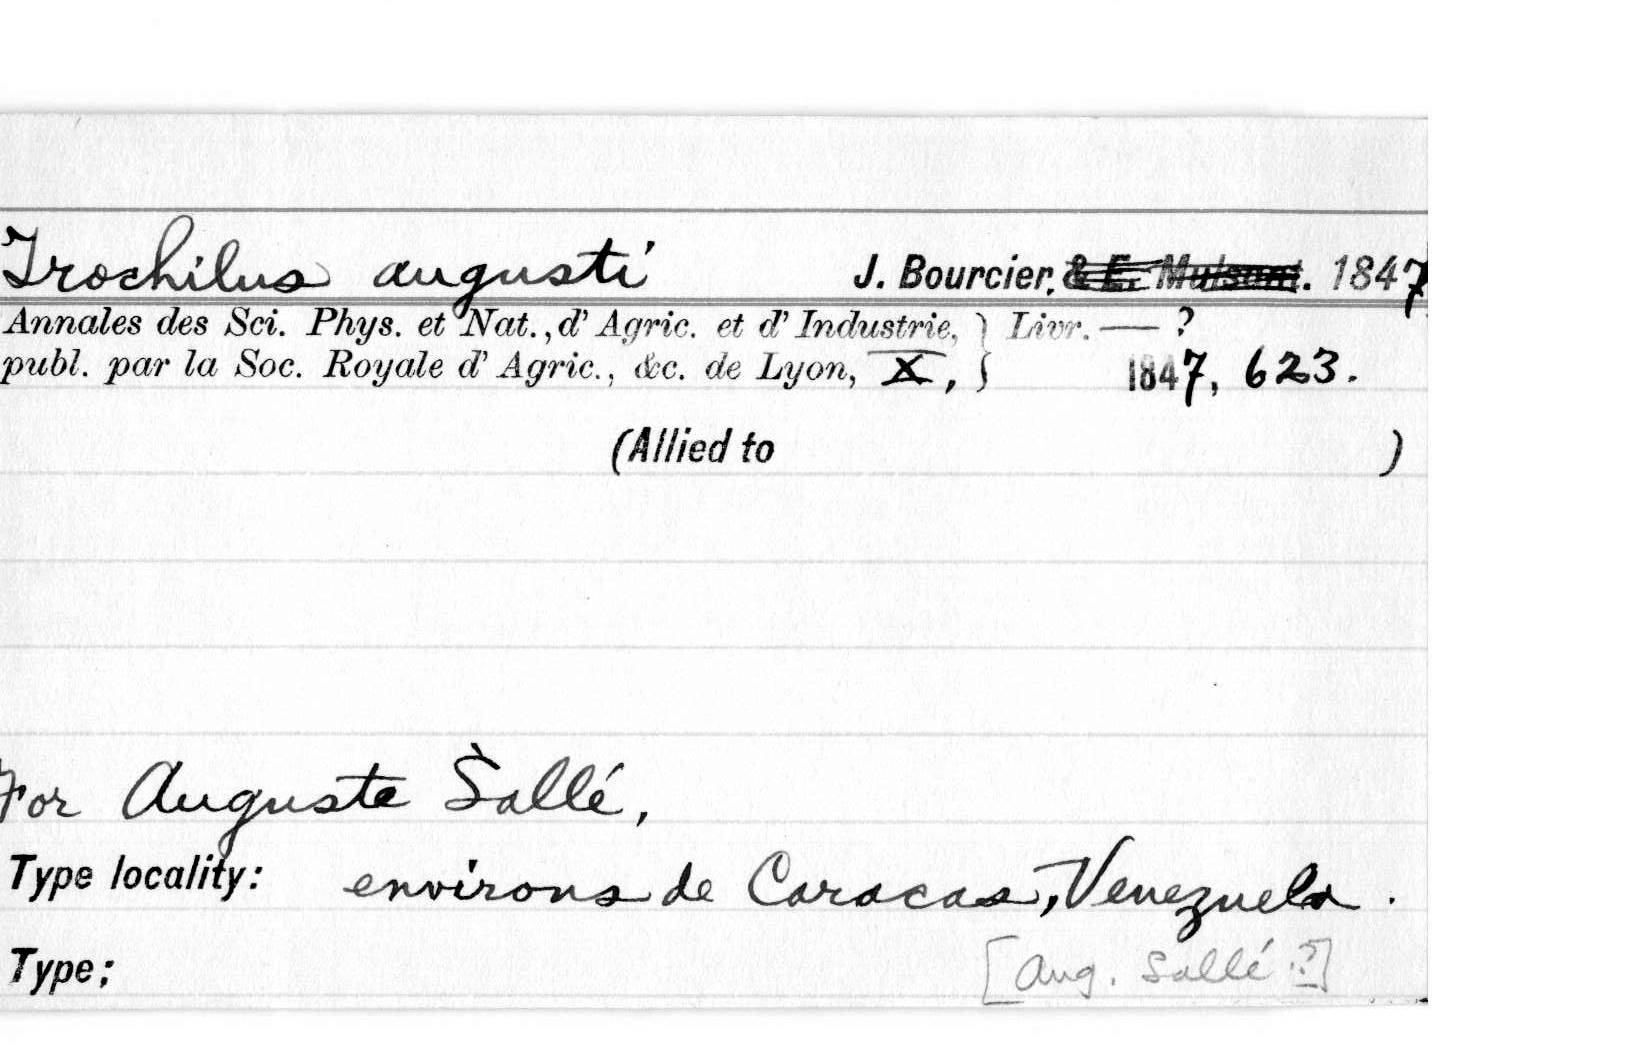 Trochilus augusti J. Bourcier, & E. Mulsant. 1847
Annales des Sci. Phys. et Nat., d' Agric. et d' Industrie, } Livr. — ?
publ. par la Soc. Royale d' Agric., &c. de Lyon, X, } 1847, 623.
(Allied to )
For Auguste Sallé,
Type locality: environs de Caracas, Venezuela.
Type: [Aug. Sallé ?]